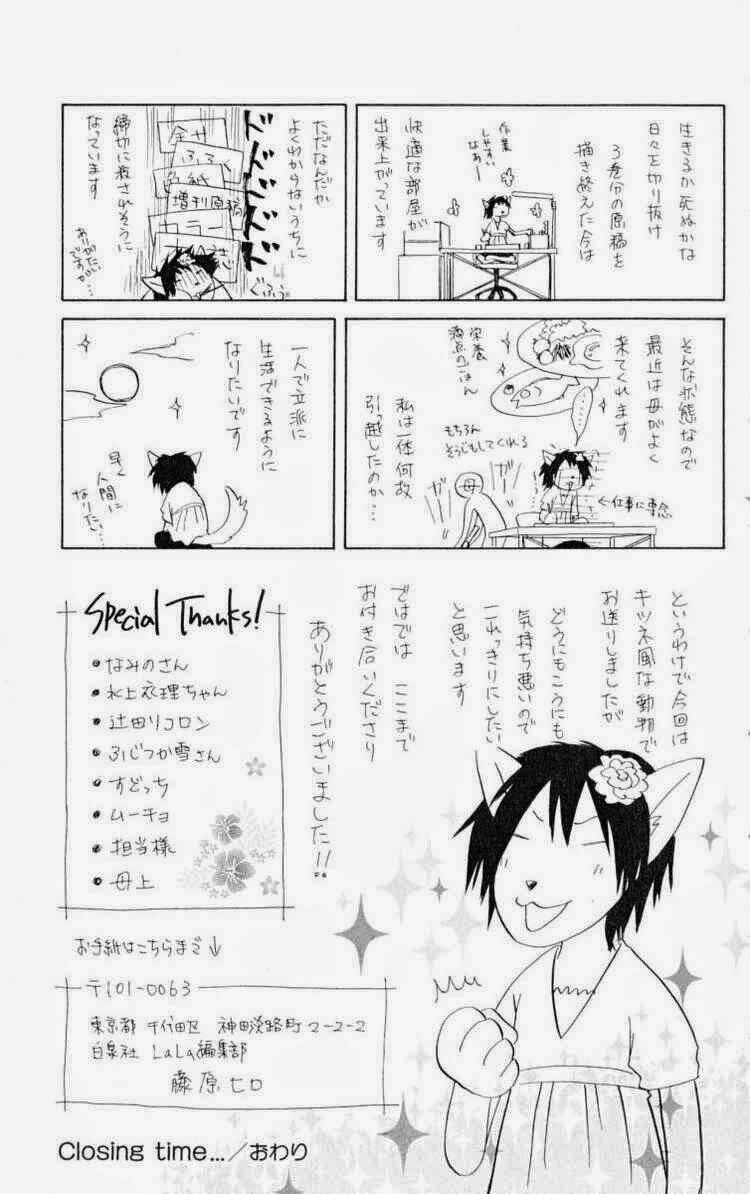 生きるか死ぬかな
日々を切り抜け
3巻分の原稿を
描き終えた今は
快適な部屋が
出来上がっています
作業
しやすい
なあー
ただなんだか
よくわからないうちに
ドドドドド
締切に殺されそうに
なっています
全サ
ふろく
色紙
増刊原稿
カラー
ぐふぅ
ありがたい
ですが…
そんな状態なので
最近は母がよく
来てくれます
栄養
満点のごはん
……
もちろん
そうじもしてくれる
ガー
ガー
母
←仕事に専念
私は一体何故
引っ越したのか…
一人で立派に
生活できるように
なりたいです
早く
人間に
なりたい…
というわけで今回は
キツネ風な動物で
お送りしましたが
どうにもこうにも
気持ち悪いので
これっきりにしたい
と思います
ではでは ここまで
お付き合いくださり
ありがとうございました!!
Special Thanks!
• なみのさん
• 水上衣理ちゃん
• 辻田リコロン
• ふじつか雪さん
• すどっち
• ムーチョ
• 担当様
• 母上
お手紙はこちらまで↓
〒101-0063
東京都 千代田区 神田淡路町2-2-2
白泉社 LaLa編集部
藤原ヒロ
Closing time…/おわり